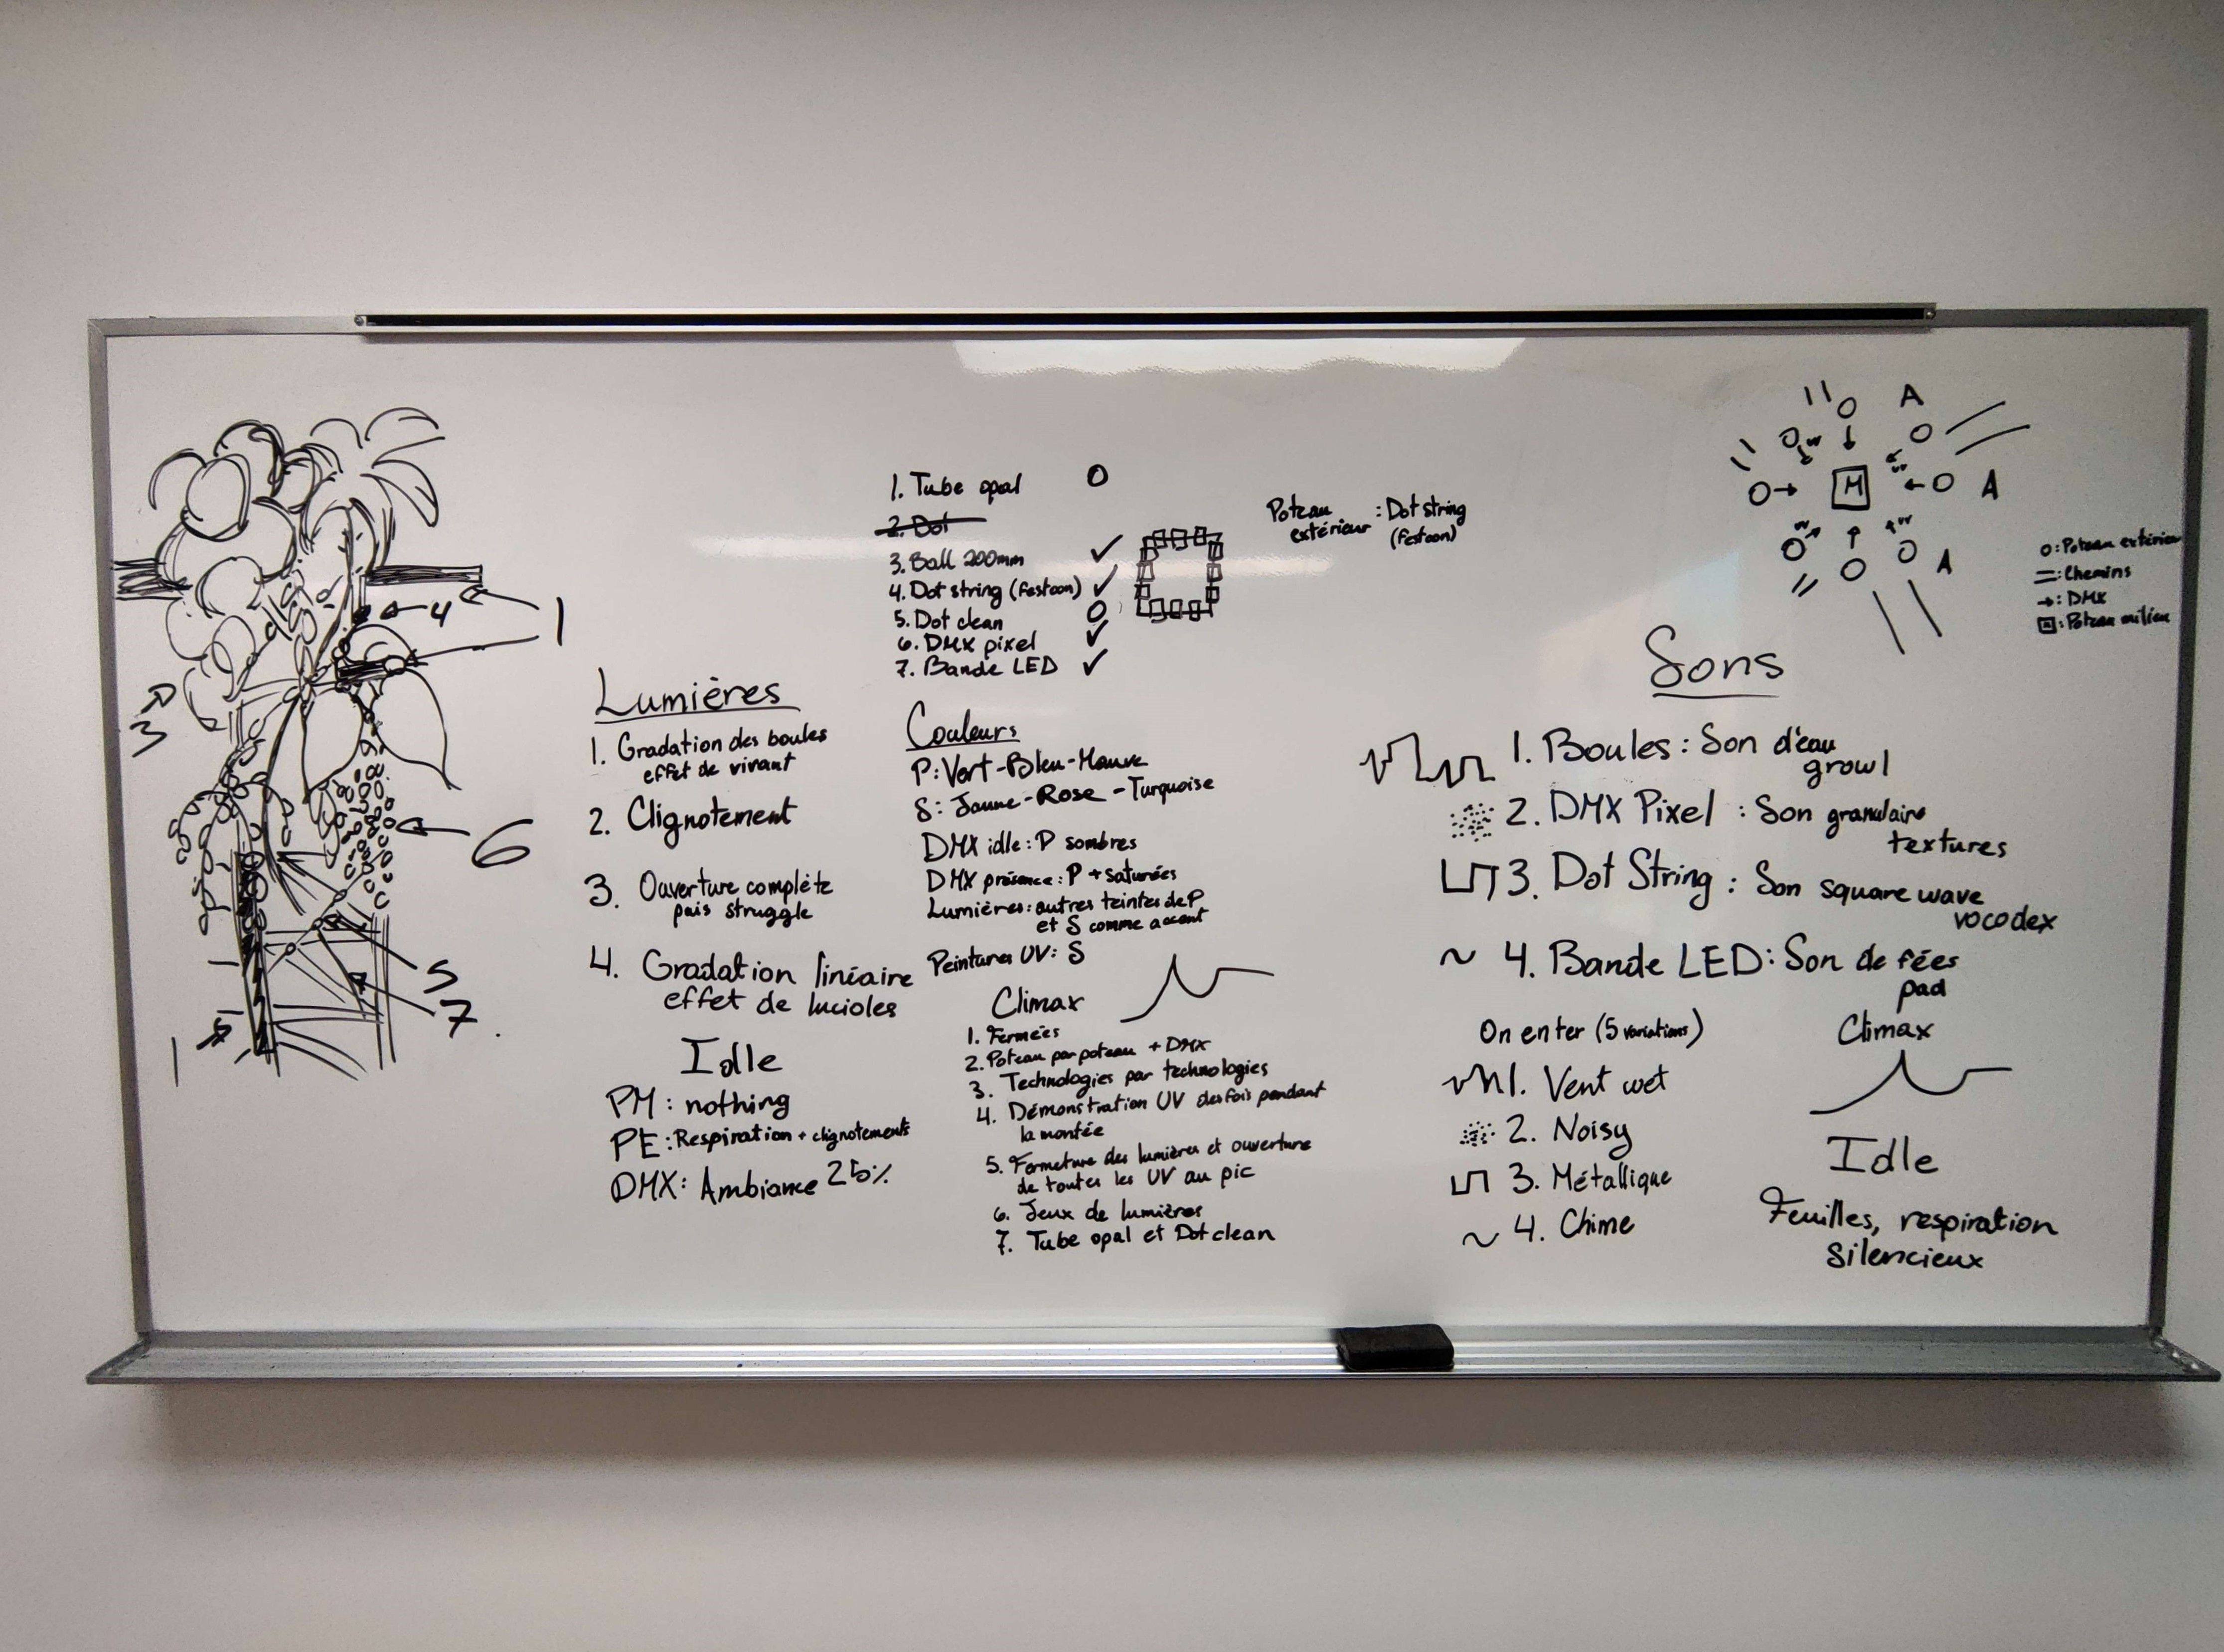 1. Tube opal O
2. Dot
3. Ball 200mm ✓
4. Dot string (festoon) ✓
5. Dot clean O
6. DMX pixel ✓
7. Bande LED ✓
Poteau : Dot string
extérieur (festoon)
A
M
A
A
O: Poteau extérieur
=: Chemins
→: DMX
M: Poteau milieu
4
1
3
6
5
7
1
Lumières
1. Gradation des boules
effet de vivant
2. Clignotement
3. Ouverture complète
puis struggle
4. Gradation linéaire
effet de lucioles
Idle
PM: nothing
PE: Respiration + clignotements
DMX: Ambiance 25%
Couleurs
P: Vert-Bleu-Mauve
S: Jaune-Rose-Turquoise
DMX idle: P sombres
DMX présence: P + saturées
Lumières: autres teintes de P
et S comme accent
Peintures UV: S
Climax
1. Fermées
2. Poteau par poteau + DMX
3. Technologies par technologies
4. Démonstration UV des fois pendant
la montée
5. Fermeture des lumières et ouverture
de toutes les UV au pic
6. Jeux de lumières
7. Tube opal et Dot clean
Sons
1. Boules: Son d'eau
growl
2. DMX Pixel: Son granulaire
textures
3. Dot String: Son square wave
vocodex
~ 4. Bande LED: Son de fées
pad
On enter (5 variations)
1. Vent wet
2. Noisy
3. Métallique
~ 4. Chime
Climax
Idle
Feuilles, respiration
Silencieux